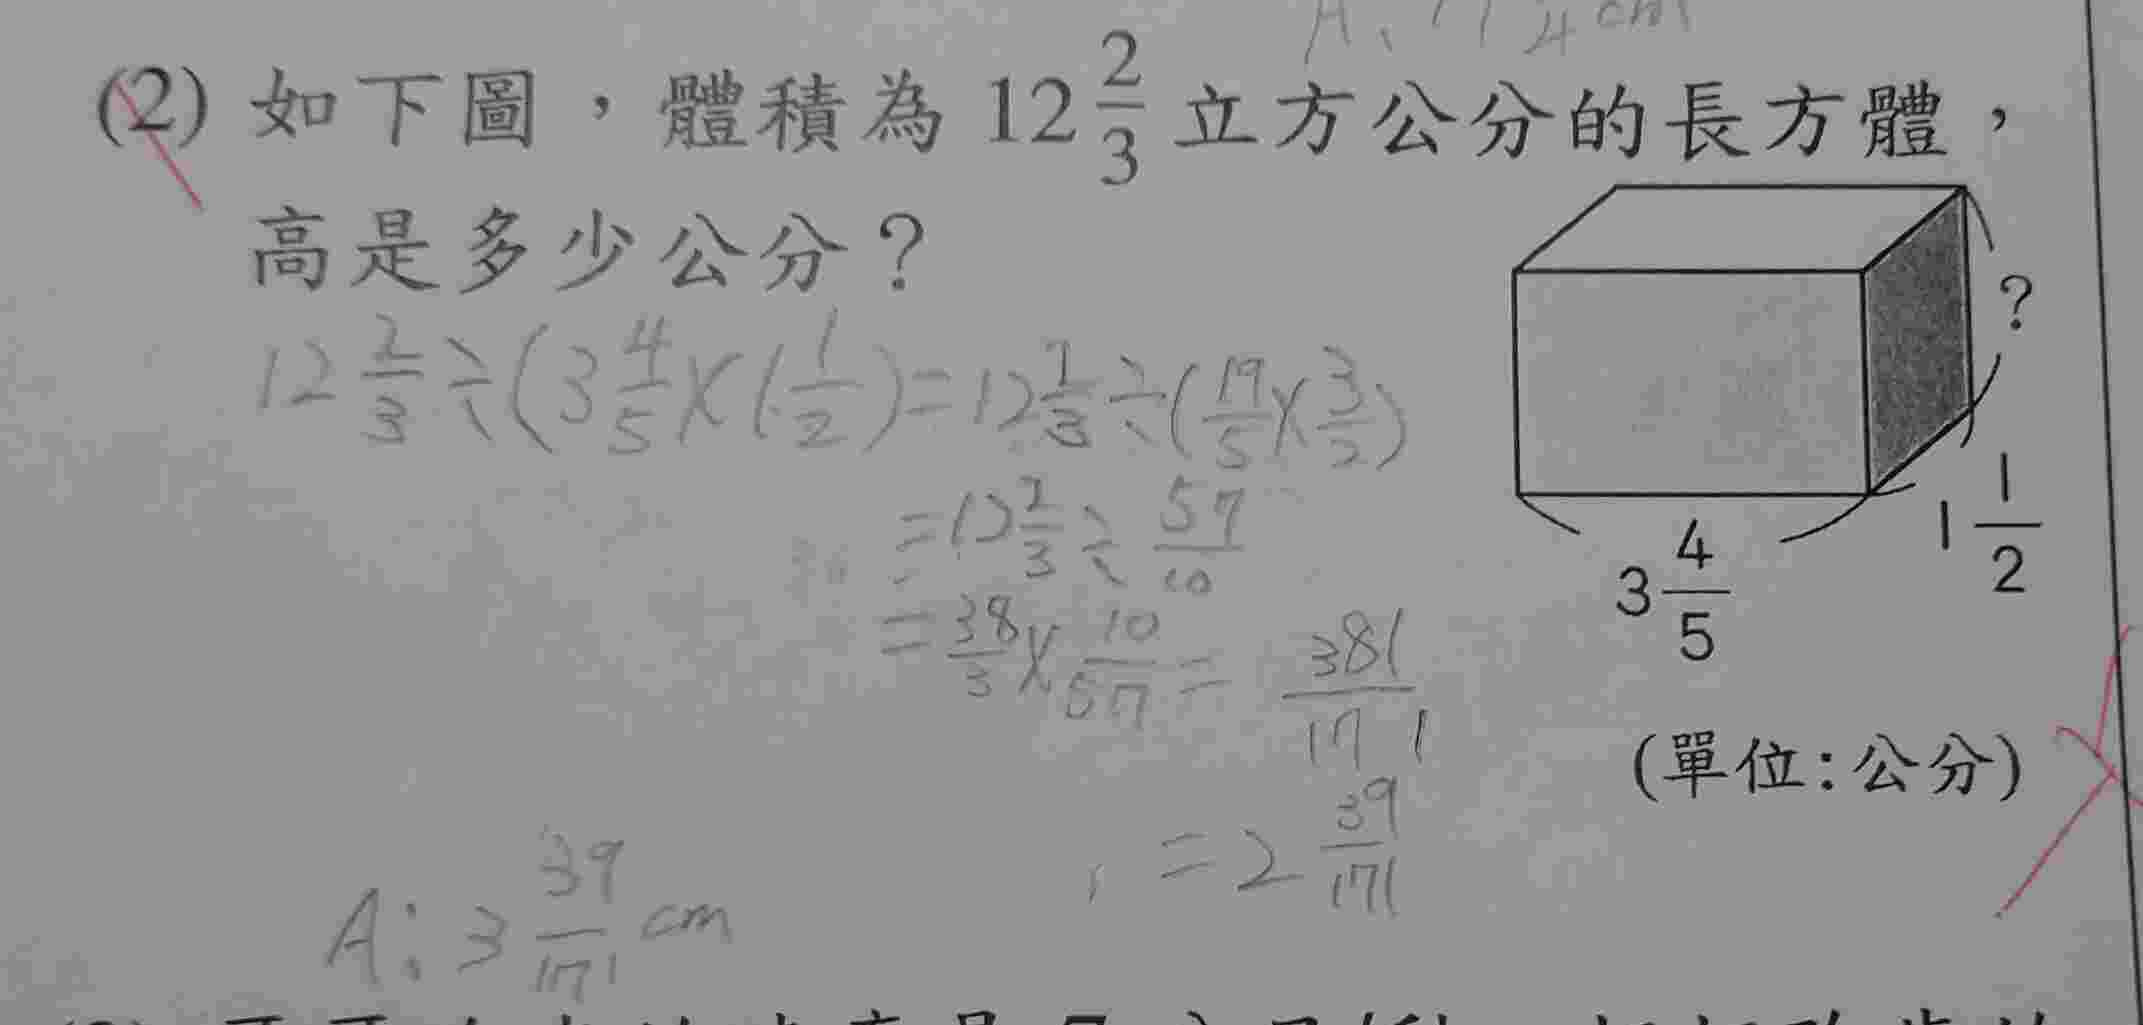 4 cm
(2) 如下圖，體積為 12 2/3 立方公分的長方體，
高是多少公分？
12 2/3 ÷ (3 4/5 × 1 1/2) = 12 2/3 ÷ (19/5 × 3/2)
= 12 2/3 ÷ 57/10
= 38/3 × 10/57 = 381/171
= 2 39/171
A: 3 39/171 cm
?
1 1/2
3 4/5
(單位:公分)